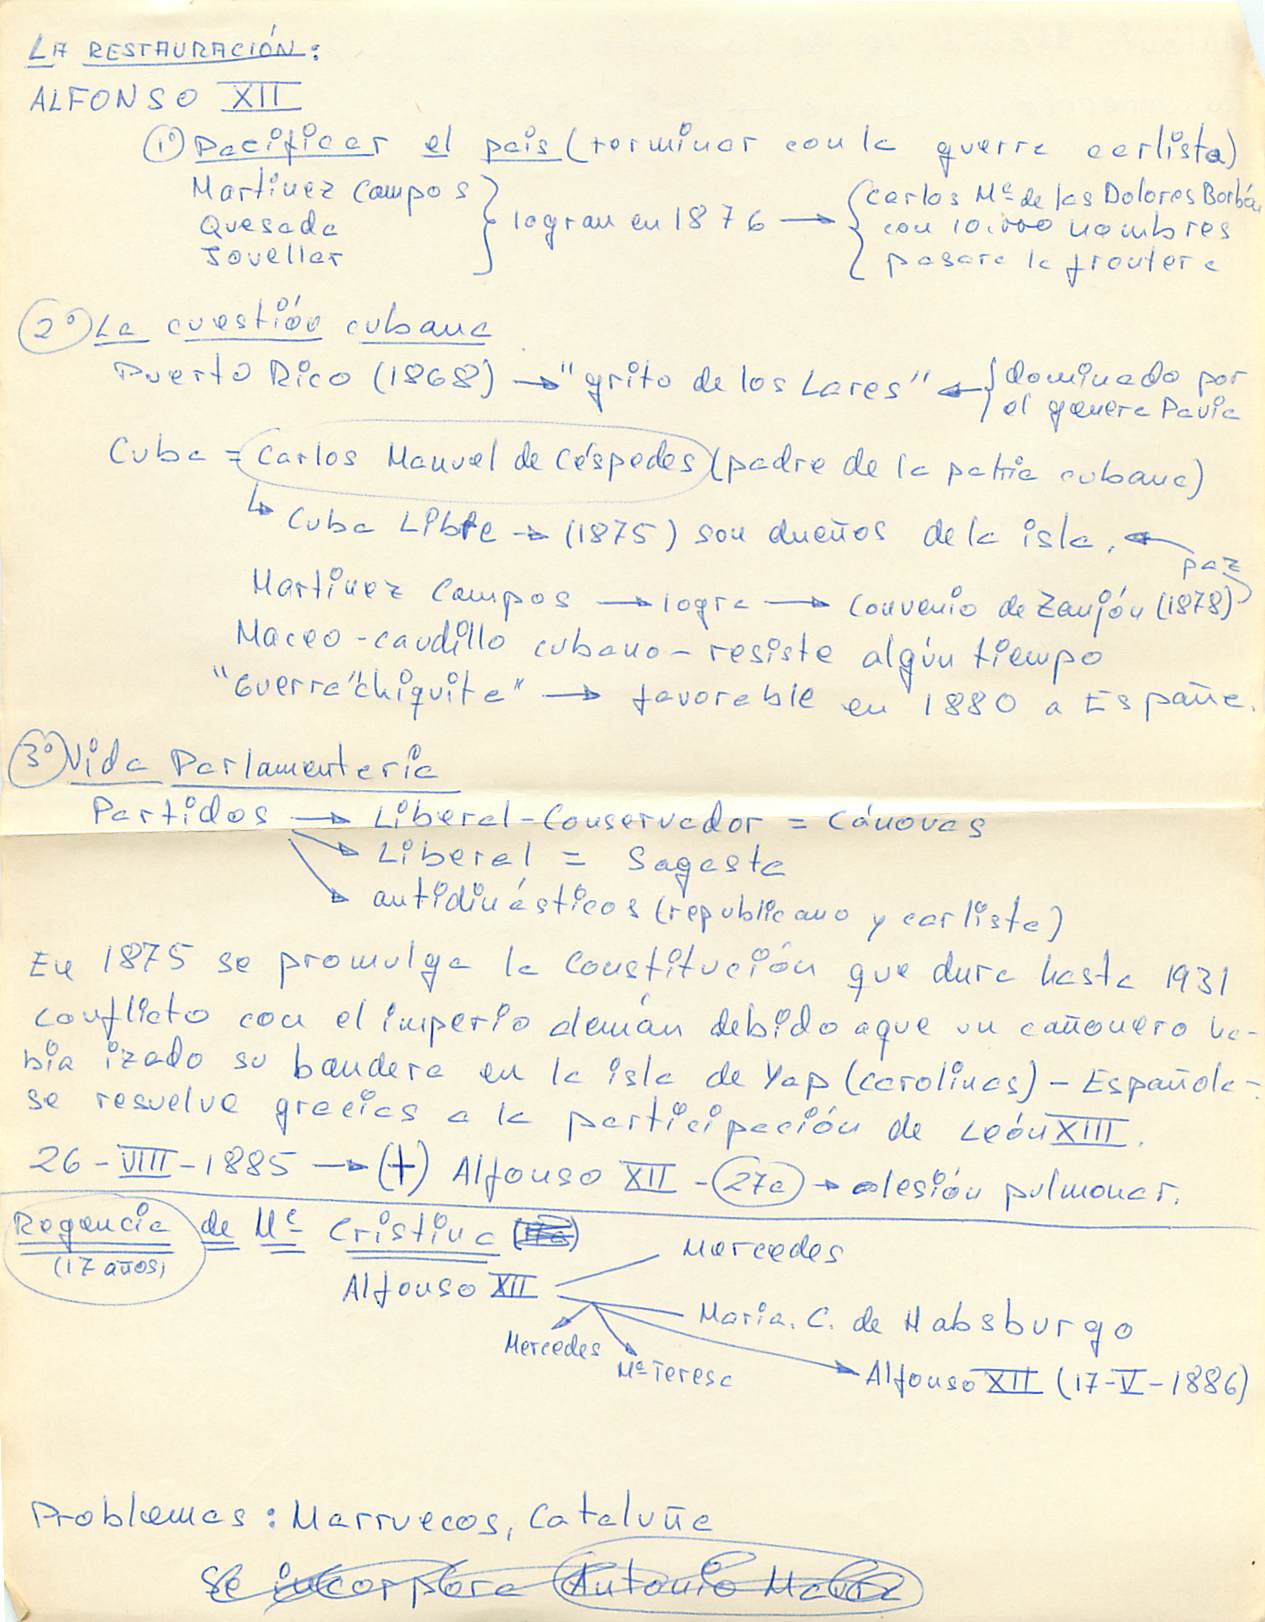 LA RESTAURACIÓN:
ALFONSO XII
1º) Pacificar el pais (terminar con la guerra carlista)
Martinez Campos
Quesada
Jovellar
logran en 1876 →
Carlos Mª de los Dolores Borbón
con 10.000 hombres
pasara la frontera
2º) La cuestión cubana
Puerto Rico (1868) → "grito de los Lares" ←
dominado por
el genera Pavia
Cuba = Carlos Manuel de Céspedes (padre de la patria cubana)
↳ Cuba Libre → (1875) son dueños de la isla. ←
paz
Martinez Campos → logra → Convenio de Zanjón (1878)
Maceo - caudillo cubano - resiste algún tiempo
"Guerra "chiquita" → favorable en 1880 a España.
3º) Vida Parlamentaria
Partidos → Liberal-Conservador = Cánovas
→ Liberal = Sagasta
→ antidinásticos (republicano y carlista)
En 1875 se promulga la Constitución que dura hasta 1931
conflicto con el imperio alemán debido aque un cañonero ha-
bia izado su bandera en la isla de Yap (Carolinas) - Española -
se resuelve gracias a la participación de León XIII.
26 - VIII - 1885 → (+) Alfonso XII - 27a → lesión pulmonar.
Regencia de Mª Cristina
(17 años)
Alfonso XII
Mercedes
Maria. C. de Habsburgo
Mercedes
Mª Teresa
Alfonso XII (17-V-1886)
Problemas: Marruecos, Cataluña
Se incorpora Antonio Maura